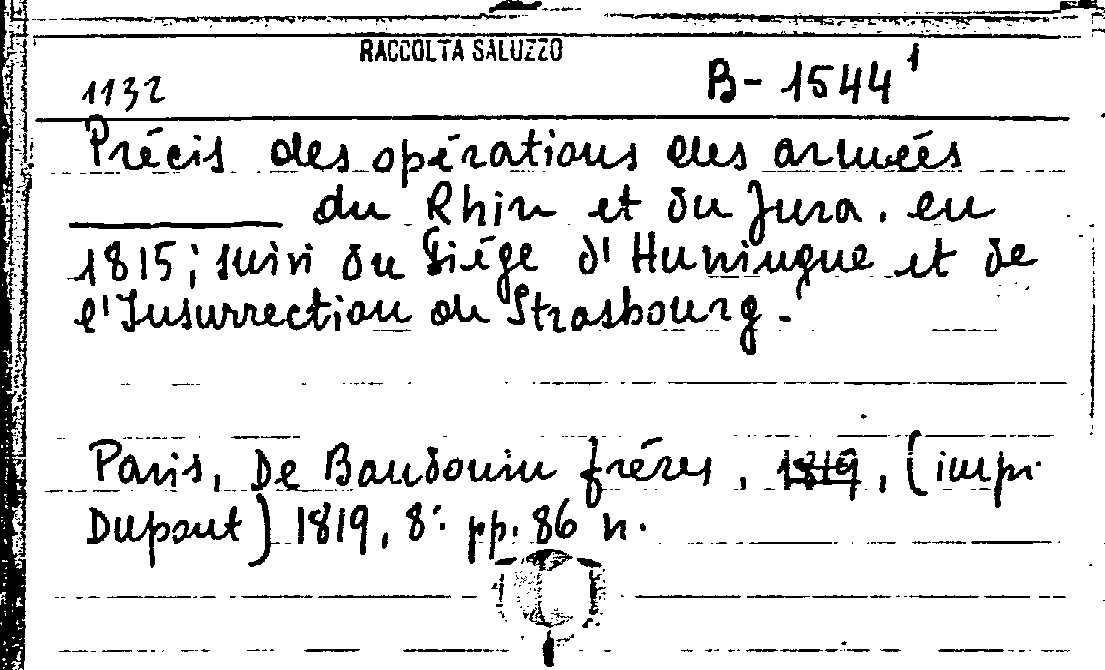 RACCOLTA SALUZZO
1132 B-1544¹
Précis des opérations des armées
du Rhin et du Jura. en
1815; suivi du Siége d'Huningue et de
l'Insurrection de Strasbourg.
Paris, De Baudouin fréres, 1819, (impr.
Dupont) 1819, 8: pp. 86 n.